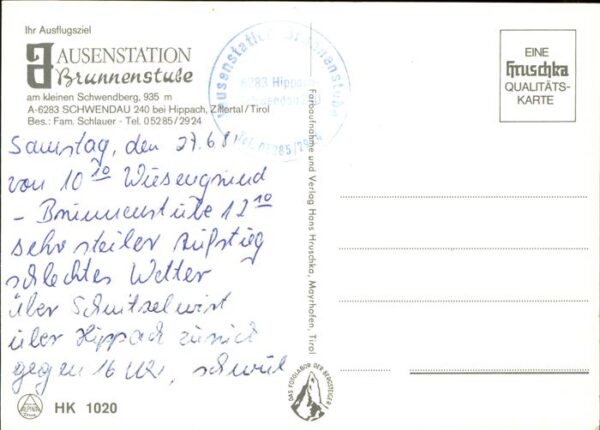 Ihr Ausflugsziel
JAUSENSTATION
Brunnenstube
am kleinen Schwendberg, 935 m
A-6283 SCHWENDAU 240 bei Hippach, Zillertal/Tirol
Bes.: Fam. Schlauer - Tel. 05285/2924
Jausenstation Brunnenstube
6283 Hippach
Tel. 05285/29
EINE
Hruschka
QUALITÄTS-
KARTE
Samstag, den 27.6.81
von 10 10 Wiesengrund
- Brunnenstube 12 10
sehr steiler Aufstieg
schlechtes Wetter
über Schnitzelwirt
über Hippach zurück
gegen 16 Uhr, schwül
Farbaufnahme und Verlag Hans Hruschka, Mayrhofen, Tirol
DAS FOTOLABOR DER BERGSTEIGER
ALPINA
HK 1020